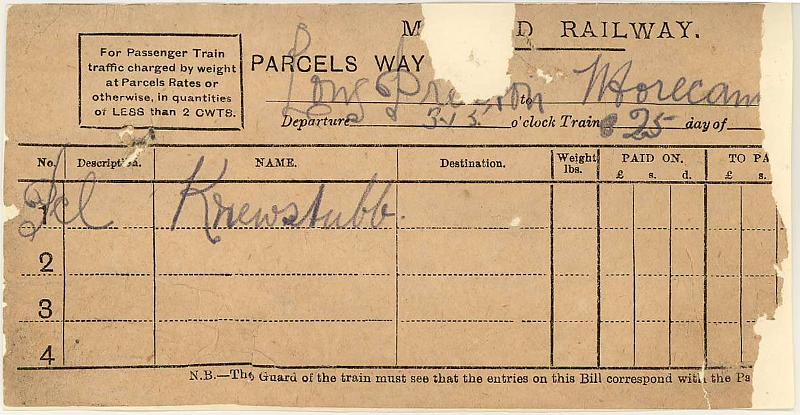 M D RAILWAY.
For Passenger Train
traffic charged by weight
at Parcels Rates or
otherwise, in quantities
of LESS than 2 CWTS.
PARCELS WAY
Long Preston to Morecam
Departure 3.15 o'clock Train 25 day of
No. Description. NAME. Destination. Weight lbs. PAID ON. TO PA
£ s. d. £ s.
1 Knewstubb.
2
3
4
N.B.—The Guard of the train must see that the entries on this Bill correspond with the Pa